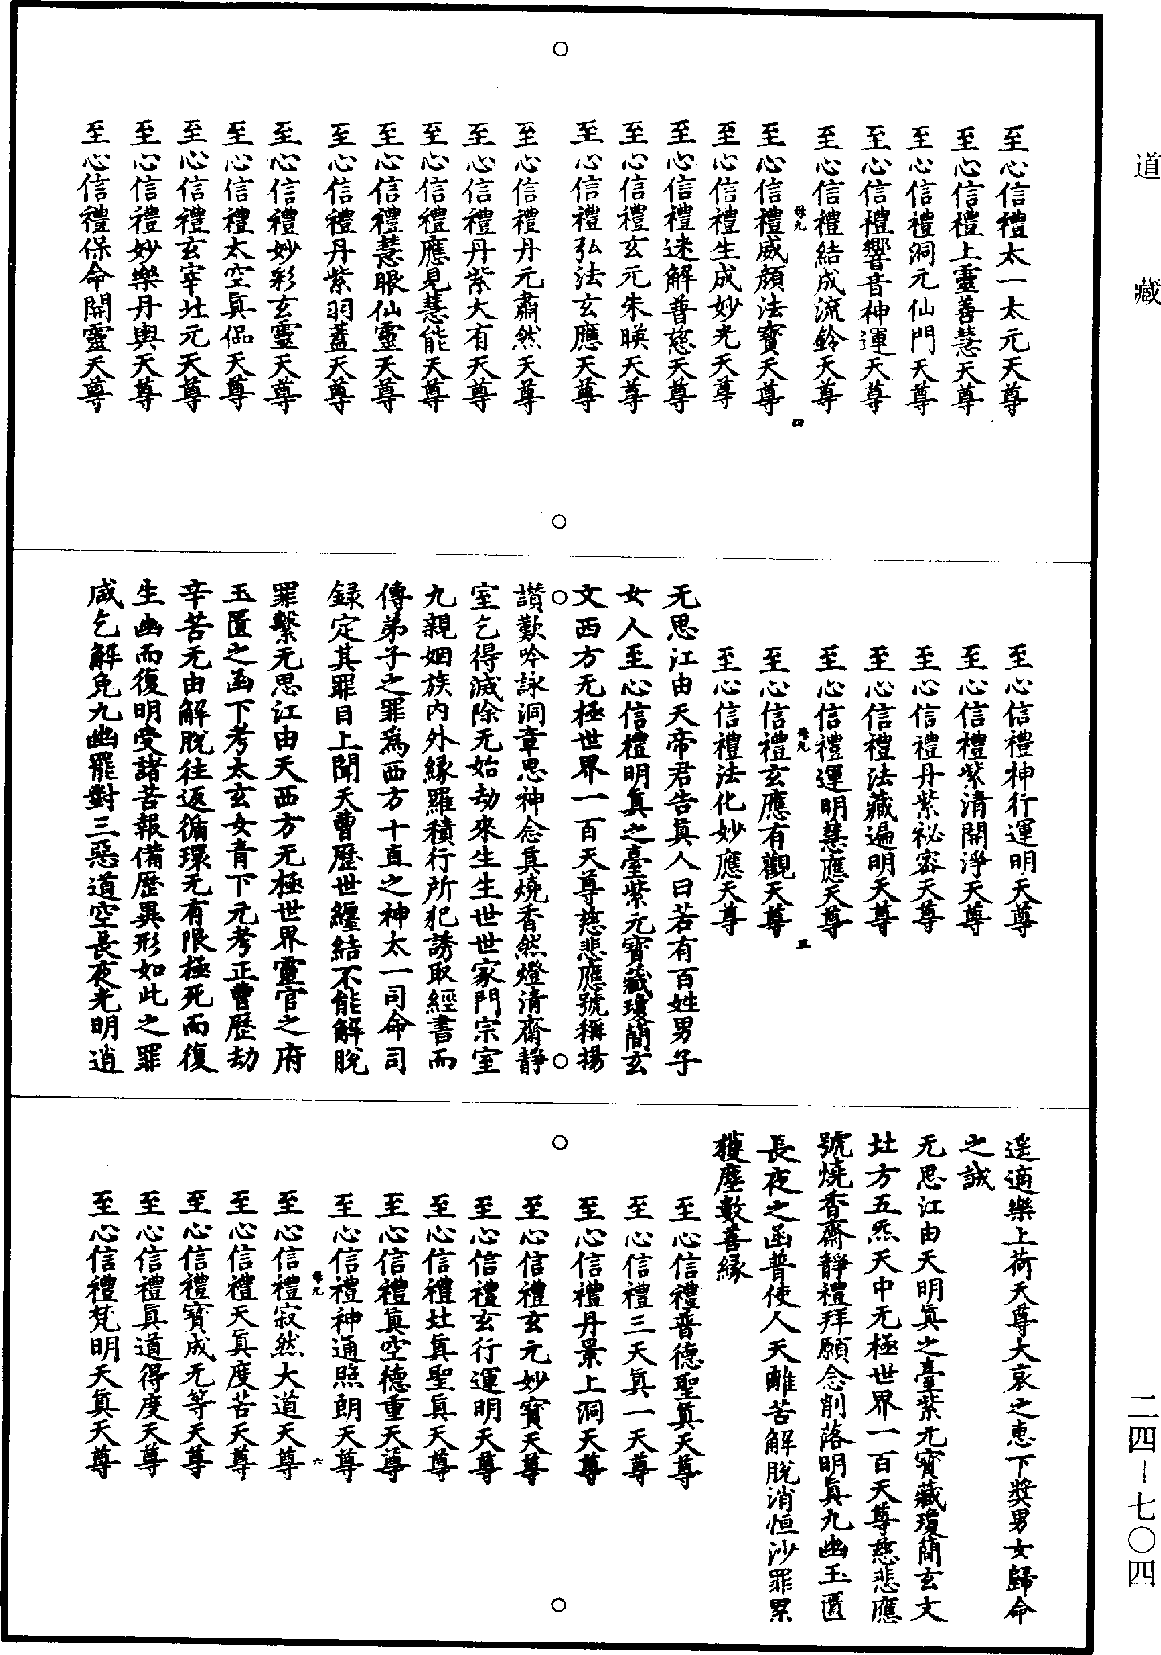 道藏
至心信禮太一太元天尊
至心信禮上靈善慧天尊
至心信禮洞元仙門天尊
至心信禮響音神運天尊
至心信禮結成流鈴天尊
至心信禮威顏法寶天尊
四
至心信禮生成妙光天尊
至心信禮迷解普慈天尊
至心信禮玄元朱暎天尊
至心信禮弘法玄應天尊
至心信禮丹元肅然天尊
至心信禮丹紫大有天尊
至心信禮應見慧能天尊
至心信禮慧眼仙靈天尊
至心信禮丹紫羽蓋天尊
至心信禮妙彩玄靈天尊
至心信禮太空真侶天尊
至心信禮玄宰壯元天尊
至心信禮妙樂丹輿天尊
至心信禮保命開靈天尊
至心信禮神行運明天尊
至心信禮紫清開淨天尊
至心信禮丹紫祕容天尊
至心信禮法藏遍明天尊
至心信禮運明慧應天尊
至心信禮玄應有觀天尊
五
至心信禮法化妙應天尊
无思江由天帝君告眞人曰若有百姓男子
女人至心信禮明眞之臺紫元寶藏瓊簡玄
文西方无極世界一百天尊慈悲應號稱揚
讃歎吟詠洞章思神念真燒香然燈清齋靜
室乞得滅除无始劫來生生世世家門宗室
九親姻族內外緣羅積行所犯誘取經書而
傳弟子之罪爲西方十直之神太一司命司
録定其罪目上聞天曹歷世纏結不能解脫
罪繫无思江由天西方无極世界靈官之府
玉匱之函下考太玄女青下元考正曹歷劫
辛苦无由解脫往返循環无有限極死而復
生幽而復明受諸苦報備歷異形如此之罪
咸乞解免九幽罷對三惡道空長夜光明逍
遥適樂上荷天尊大哀之惠下獎男女歸命
之誠
无思江由天明眞之臺紫元寶藏瓊簡玄文
壯方五炁天中无極世界一百天尊慈悲應
號燒香齋靜禮拜願念削落明眞九幽玉匱
長夜之函普使人天離苦解脫消恒沙罪累
獲塵數善緣
至心信禮普德聖眞天尊
至心信禮三天眞一天尊
至心信禮丹景上洞天尊
至心信禮玄元妙寶天尊
至心信禮玄行運明天尊
至心信禮壯眞聖真天尊
至心信禮眞空德重天尊
至心信禮神通照朗天尊
六
至心信禮寂然大道天尊
至心信禮天眞度苦天尊
至心信禮寶成无等天尊
至心信禮真道得度天尊
至心信禮梵明天眞天尊
二四—七〇四